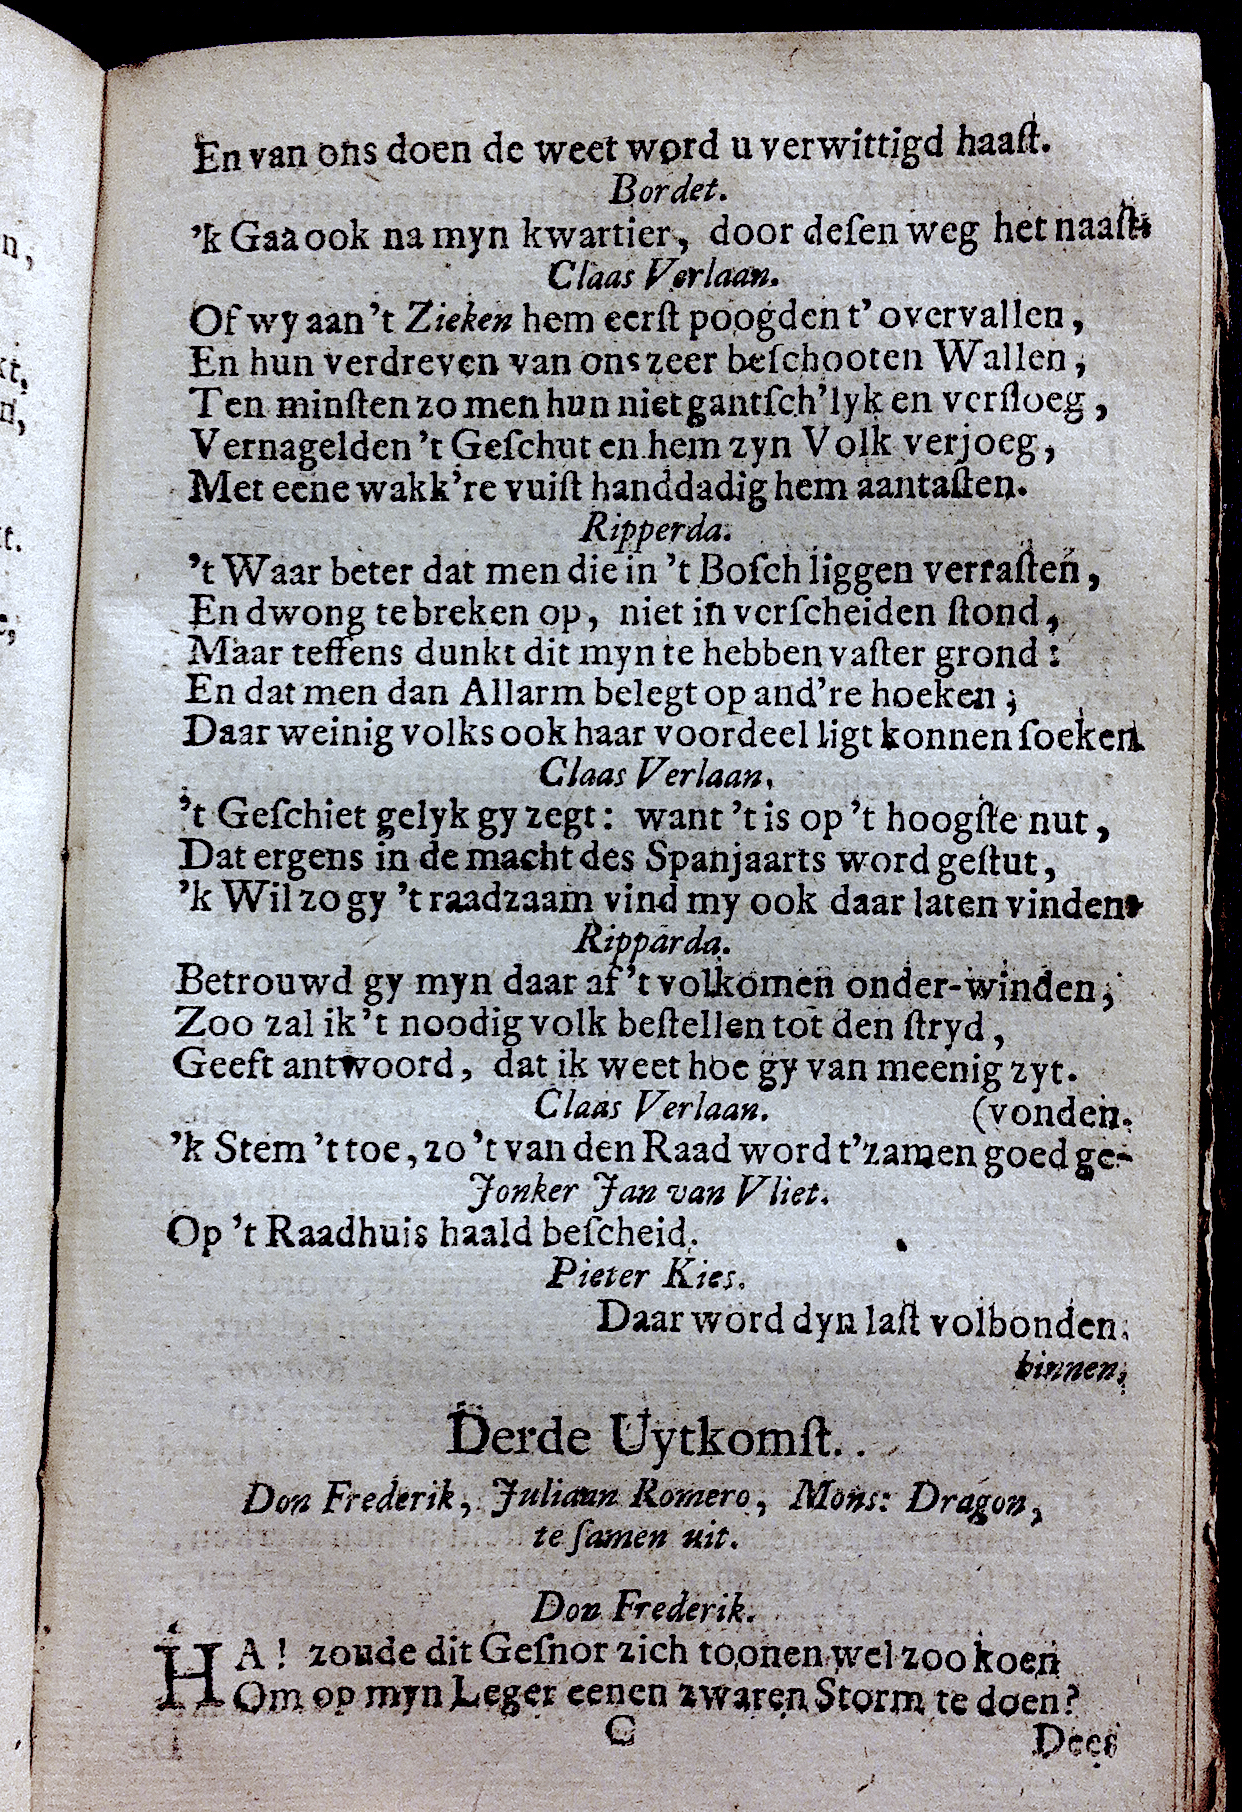 En van ons doen de weet word u verwittigd haaſt.
Bordet.
'k Gaa ook na myn kwartier, door deſen weg het naaſt.
Claas Verlaan.
Of wy aan 't Zieken hem eerſt poogden t' overvallen,
En hun verdreven van ons zeer beſchooten Wallen,
Ten minſten zo men hun niet gantſch'lyk en verſloeg,
Vernagelden 't Geſchut en hem zyn Volk verjoeg,
Met eene wakk're vuiſt handdadig hem aantaſten.
Ripperda.
't Waar beter dat men die in 't Boſch liggen verraſten,
En dwong te breken op, niet in verſcheiden ſtond,
Maar teffens dunkt dit myn te hebben vaſter grond:
En dat men dan Allarm belegt op and're hoeken;
Daar weinig volks ook haar voordeel ligt konnen ſoeken.
Claas Verlaan.
't Geſchiet gelyk gy zegt: want 't is op 't hoogſte nut,
Dat ergens in de macht des Spanjaarts word geſtut,
'k Wil zo gy 't raadzaam vind my ook daar laten vinden.
Ripparda.
Betrouwd gy myn daar af 't volkomen onder-winden,
Zoo zal ik 't noodig volk beſtellen tot den ſtryd,
Geeft antwoord, dat ik weet hoe gy van meenig zyt.
Claas Verlaan. (vonden.
'k Stem 't toe, zo 't van den Raad word t'zamen goed ge-
Jonker Jan van Vliet.
Op 't Raadhuis haald beſcheid.
Pieter Kies.
Daar word dyn laſt volbonden.
binnen.
Derde Uytkomſt.
Don Frederik, Juliaan Romero, Mons: Dragon,
te ſamen uit.
Don Frederik.
HA! zoude dit Geſnor zich toonen wel zoo koen
Om op myn Leger eenen zwaren Storm te doen?
C Dees